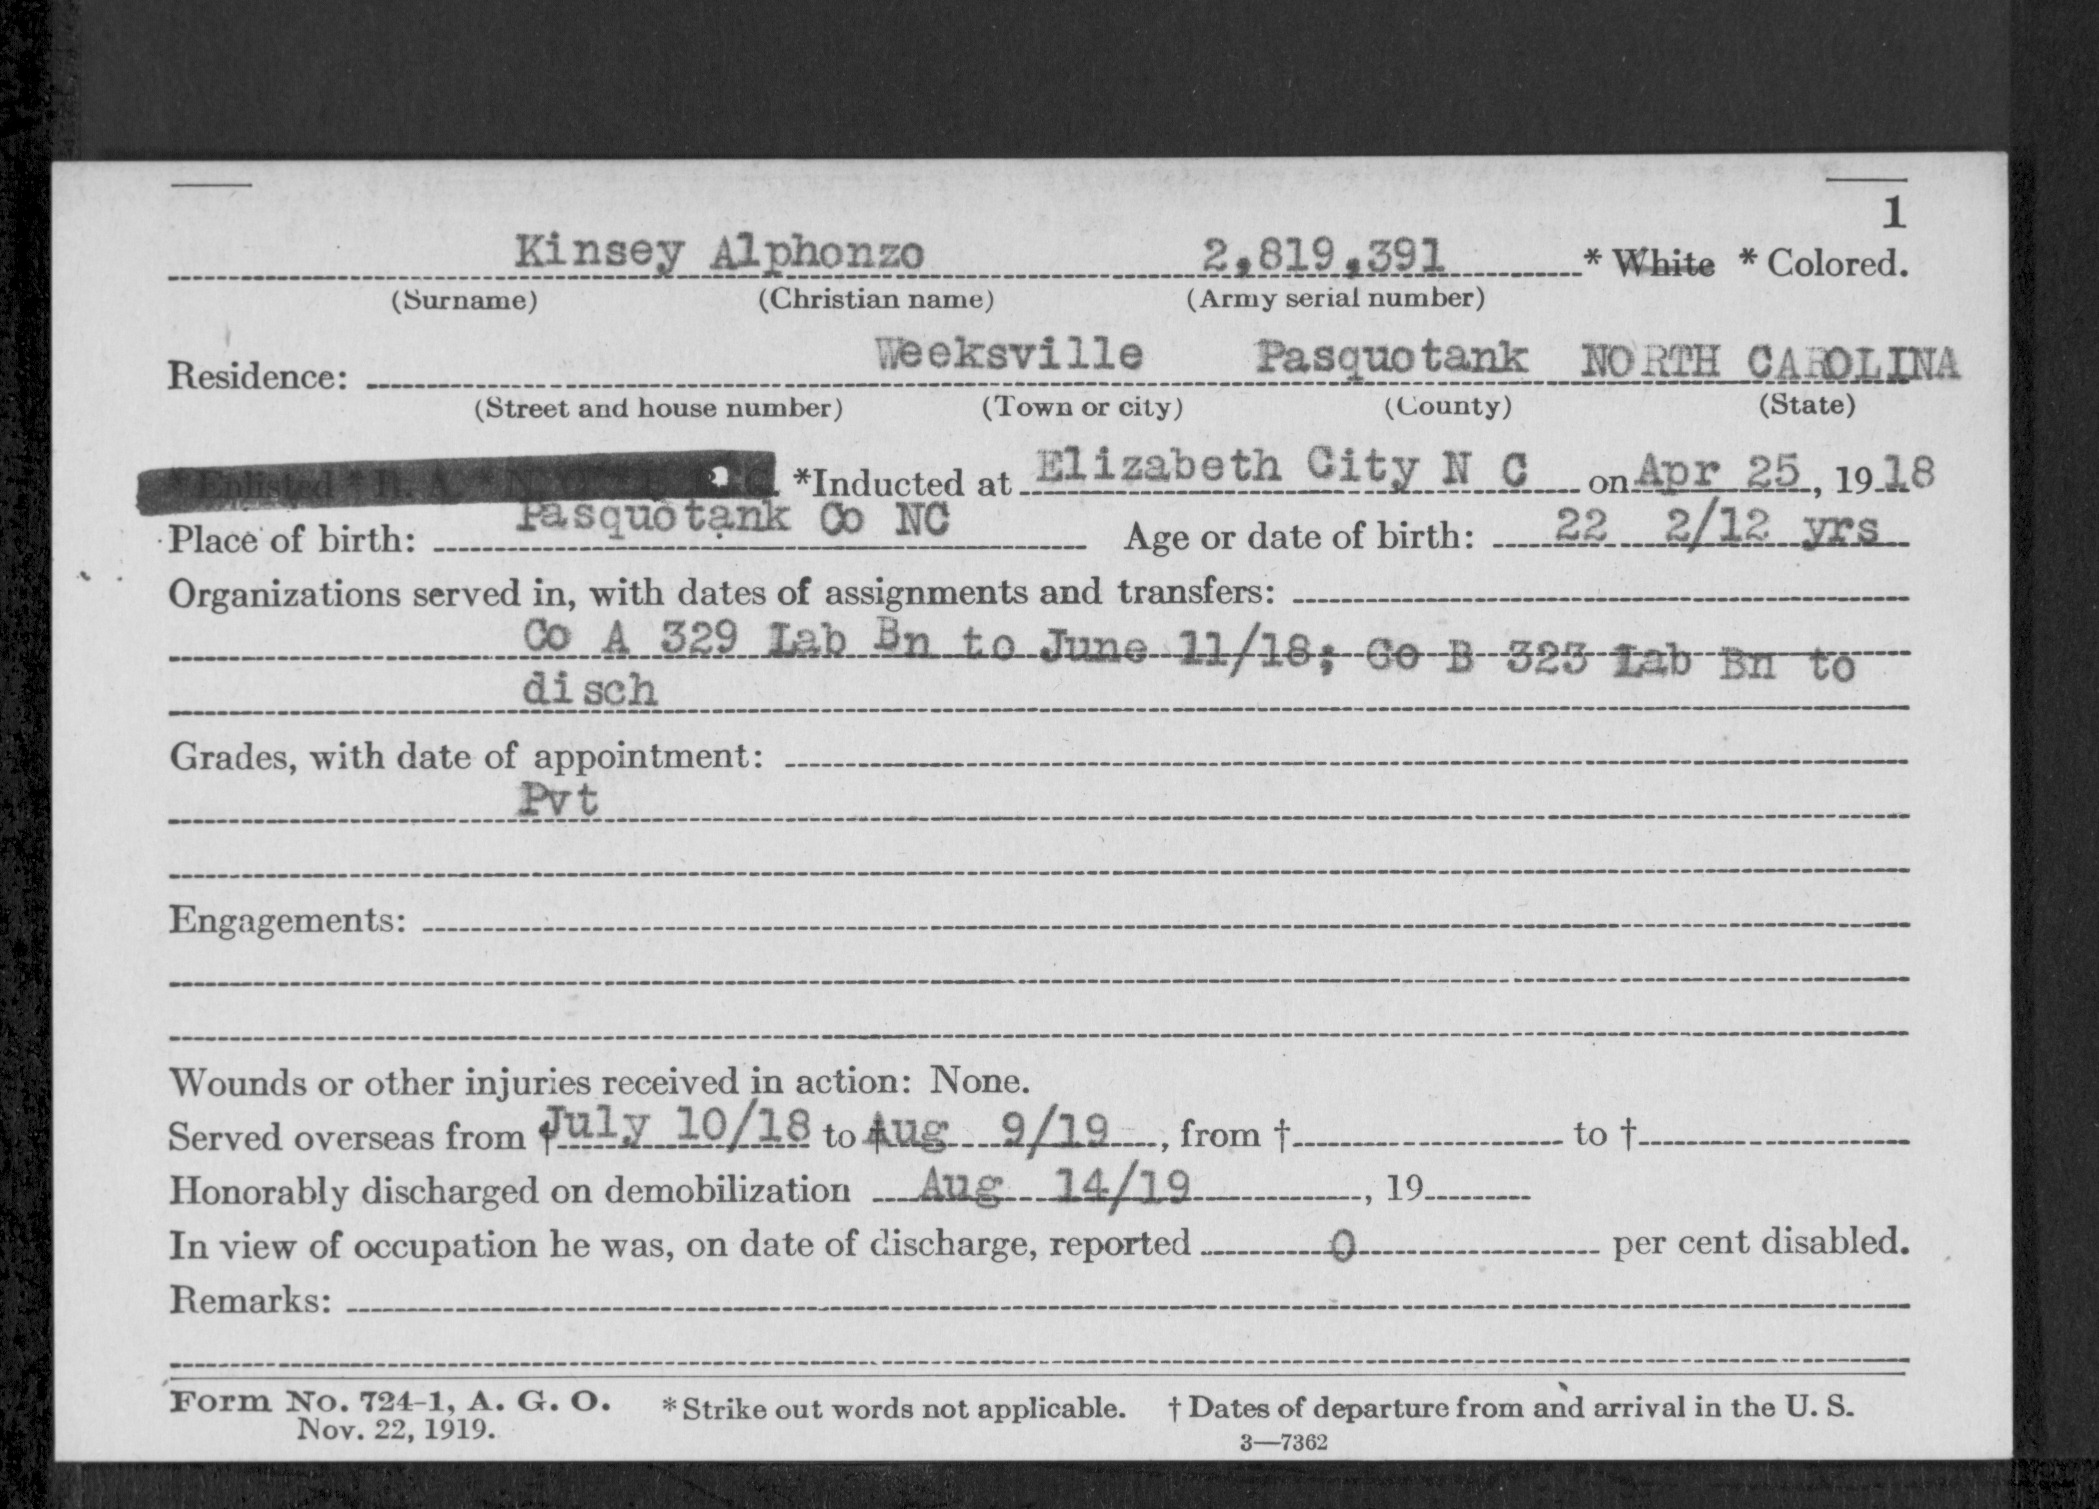 1
Kinsey Alphonzo 2,819,391 * White * Colored.
(Surname) (Christian name) (Army serial number)
Residence: Weeksville Pasquotank NORTH CAROLINA
(Street and house number) (Town or city) (County) (State)
*Enlisted * R. A. * N. G. *Inducted at Elizabeth City N C on Apr 25, 1918
Place of birth: Pasquotank Co NC Age or date of birth: 22 2/12 yrs
Organizations served in, with dates of assignments and transfers:
Co A 329 Lab Bn to June 11/18; Co B 323 Lab Bn to
disch
Grades, with date of appointment:
Pvt
Engagements:
Wounds or other injuries received in action: None.
Served overseas from † July 10/18 to † Aug 9/19, from † to †
Honorably discharged on demobilization Aug 14/19, 19
In view of occupation he was, on date of discharge, reported 0 per cent disabled.
Remarks:
Form No. 724-1, A. G. O. * Strike out words not applicable. † Dates of departure from and arrival in the U. S.
Nov. 22, 1919. 3—7362